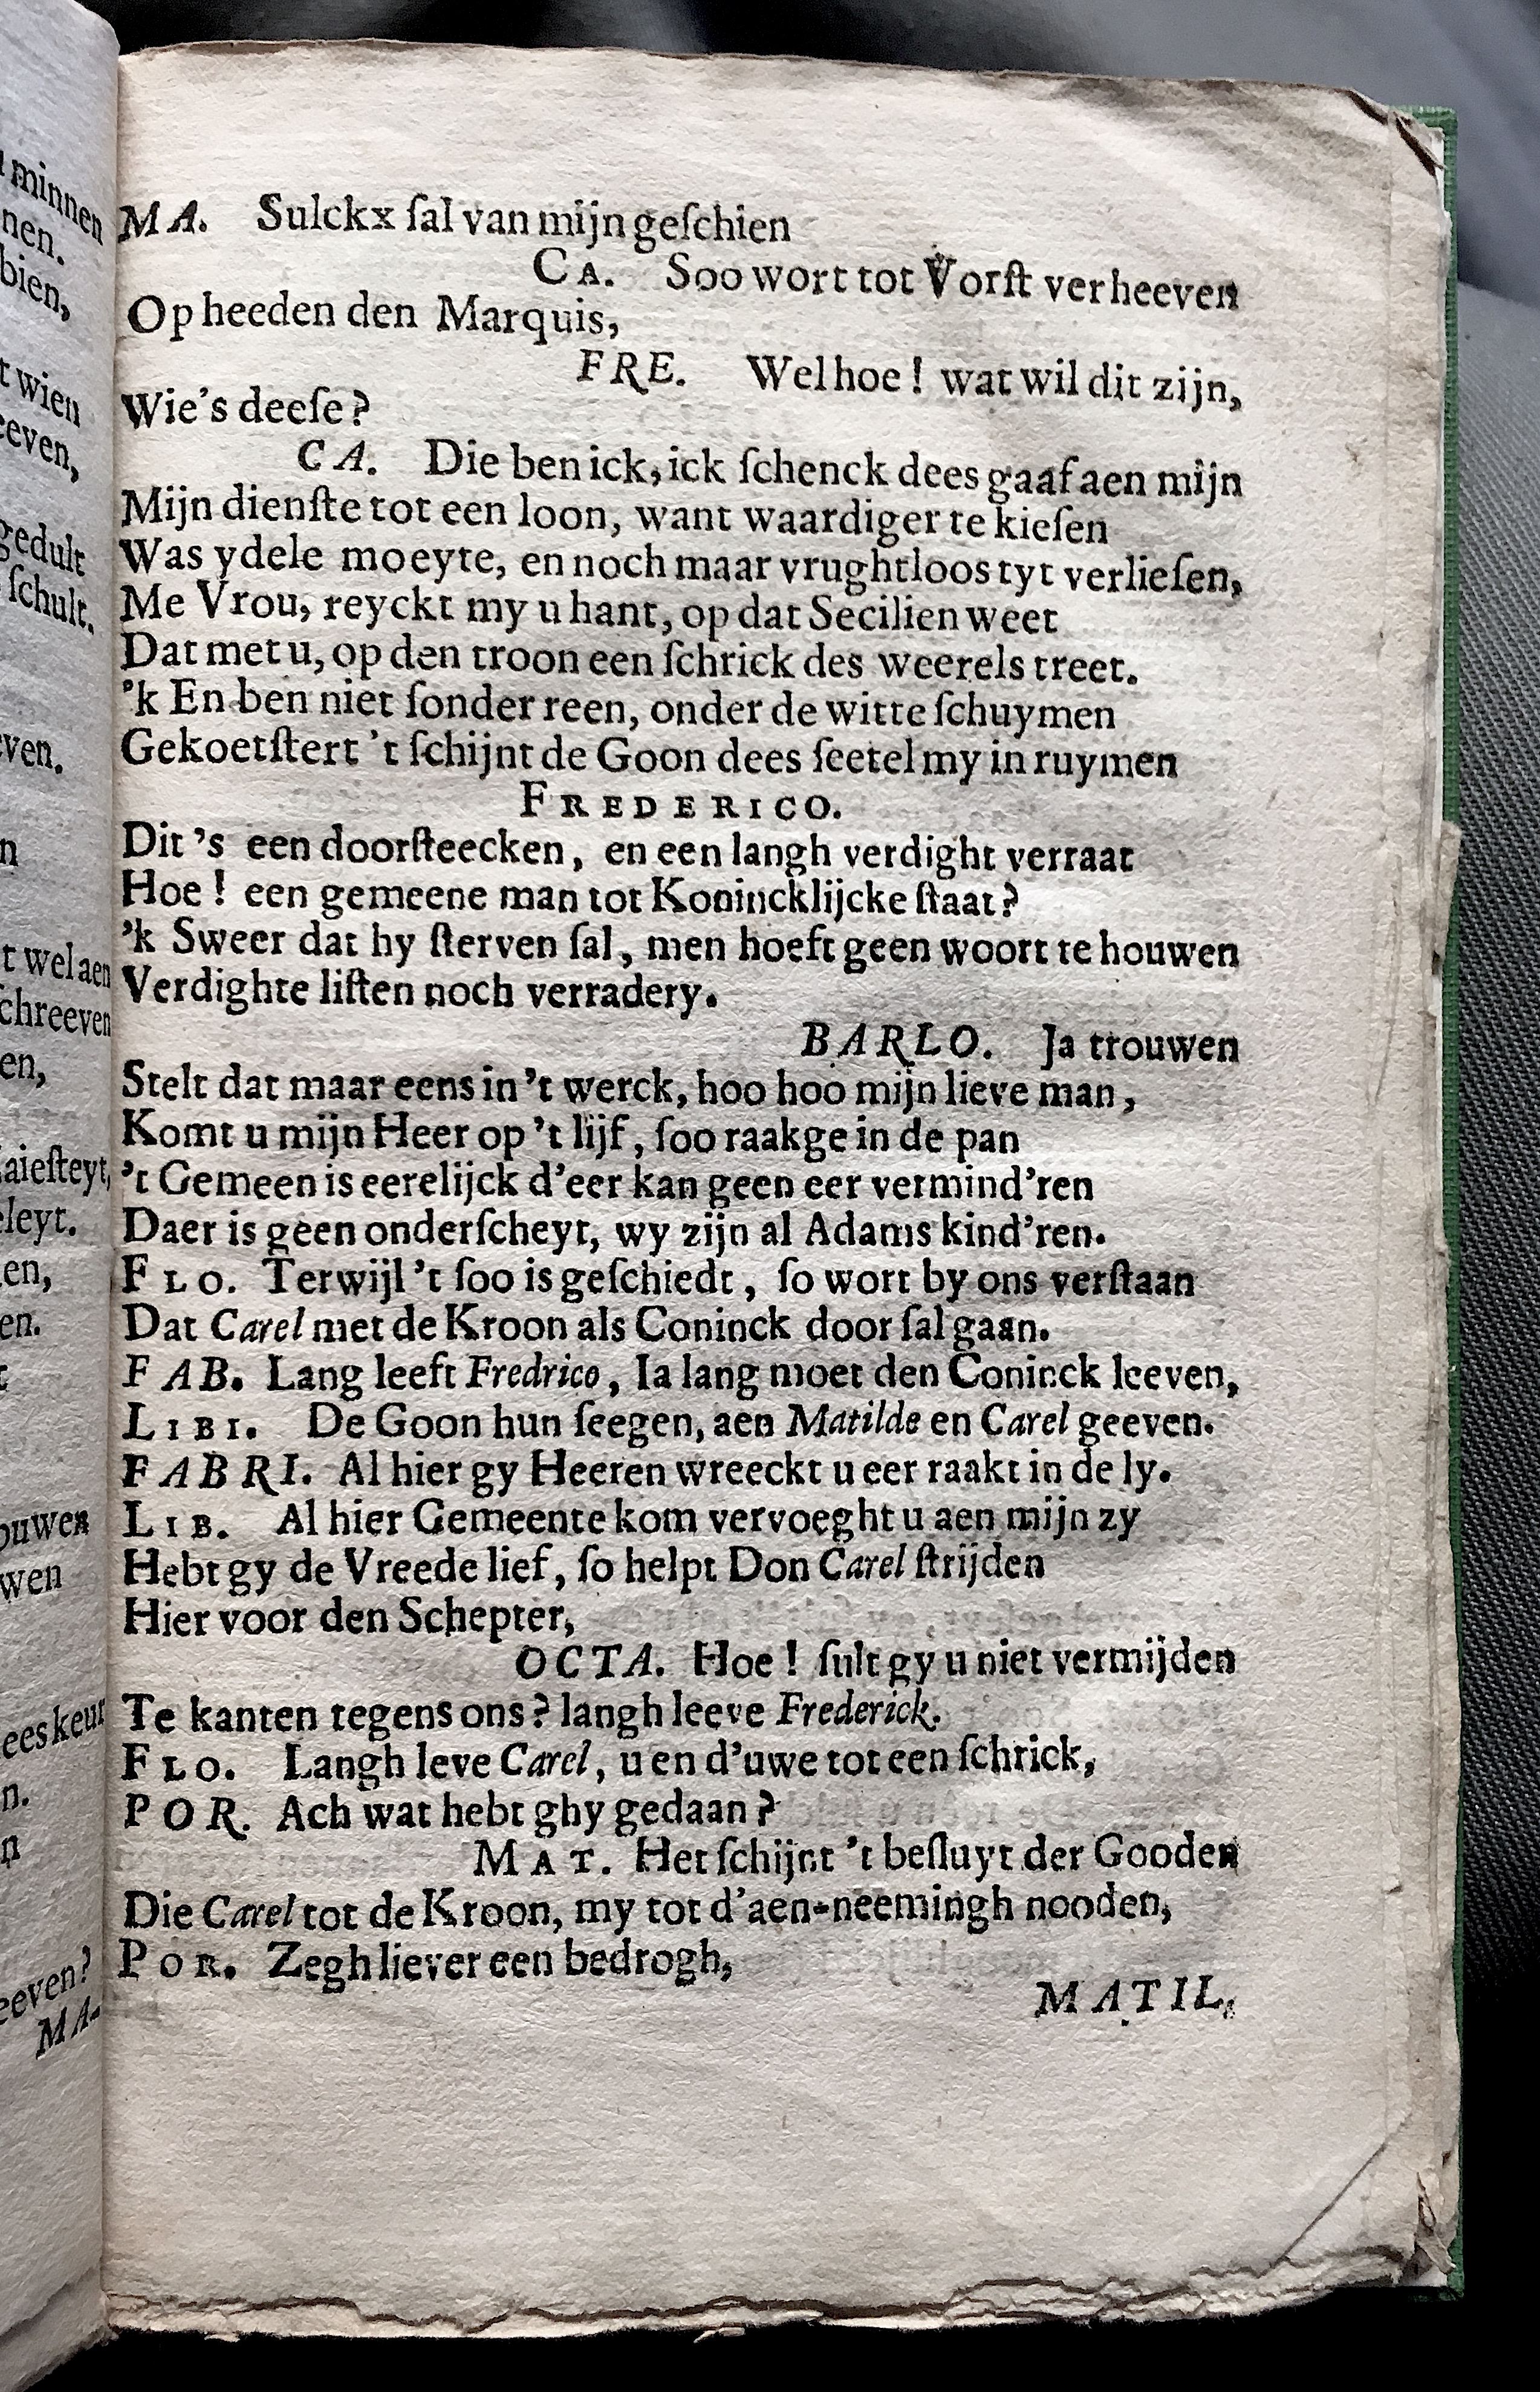 minnen
nen.
bien,
t wien
eeven,
gedult
ſchult.
ven.
n
t wel aen
chreeven
en,
aieſteyt,
leyt.
en,
en.
t
ouwen
wen
ees keur
n.
n
eeven?
MA-
MA. Sulckx ſal van mijn geſchien
CA. Soo wort tot Vorſt verheeven
Op heeden den Marquis,
FRE. Wel hoe! wat wil dit zijn,
Wie's deeſe?
CA. Die ben ick, ick ſchenck dees gaaf aen mijn
Mijn dienſte tot een loon, want waardiger te kieſen
Was ydele moeyte, en noch maar vrughtloos tyt verlieſen,
Me Vrou, reyckt my u hant, op dat Secilien weet
Dat met u, op den troon een ſchrick des weerels treet.
'k En ben niet ſonder reen, onder de witte ſchuymen
Gekoetſtert 't ſchijnt de Goon dees ſeetel my in ruymen
FREDERICO.
Dit 's een doorſteecken, en een langh verdight verraat
Hoe! een gemeene man tot Konincklijcke ſtaat?
'k Sweer dat hy ſterven ſal, men hoeft geen woort te houwen
Verdighte liſten noch verradery.
BARLO. Ja trouwen
Stelt dat maar eens in 't werck, hoo hoo mijn lieve man,
Komt u mijn Heer op 't lijf, ſoo raakge in de pan
't Gemeen is eerelijck d'eer kan geen eer vermind'ren
Daer is geen onderſcheyt, wy zijn al Adams kind'ren.
FLO. Terwijl 't ſoo is geſchiedt, ſo wort by ons verſtaan
Dat Carel met de Kroon als Coninck door ſal gaan.
FAB. Lang leeft Fredrico, Ia lang moet den Coninck leeven,
LIBI. De Goon hun ſeegen, aen Matilde en Carel geeven.
FABRI. Al hier gy Heeren wreeckt u eer raakt in de ly.
LIB. Al hier Gemeente kom vervoeght u aen mijn zy
Hebt gy de Vreede lief, ſo helpt Don Carel ſtrijden
Hier voor den Schepter,
OCTA. Hoe! ſult gy u niet vermijden
Te kanten tegens ons? langh leeve Frederick.
FLO. Langh leve Carel, u en d'uwe tot een ſchrick,
POR. Ach wat hebt ghy gedaan?
MAT. Het ſchijnt 't beſluyt der Gooden
Die Carel tot de Kroon, my tot d'aen-neemingh nooden,
POR. Zegh liever een bedrogh,
MATIL.